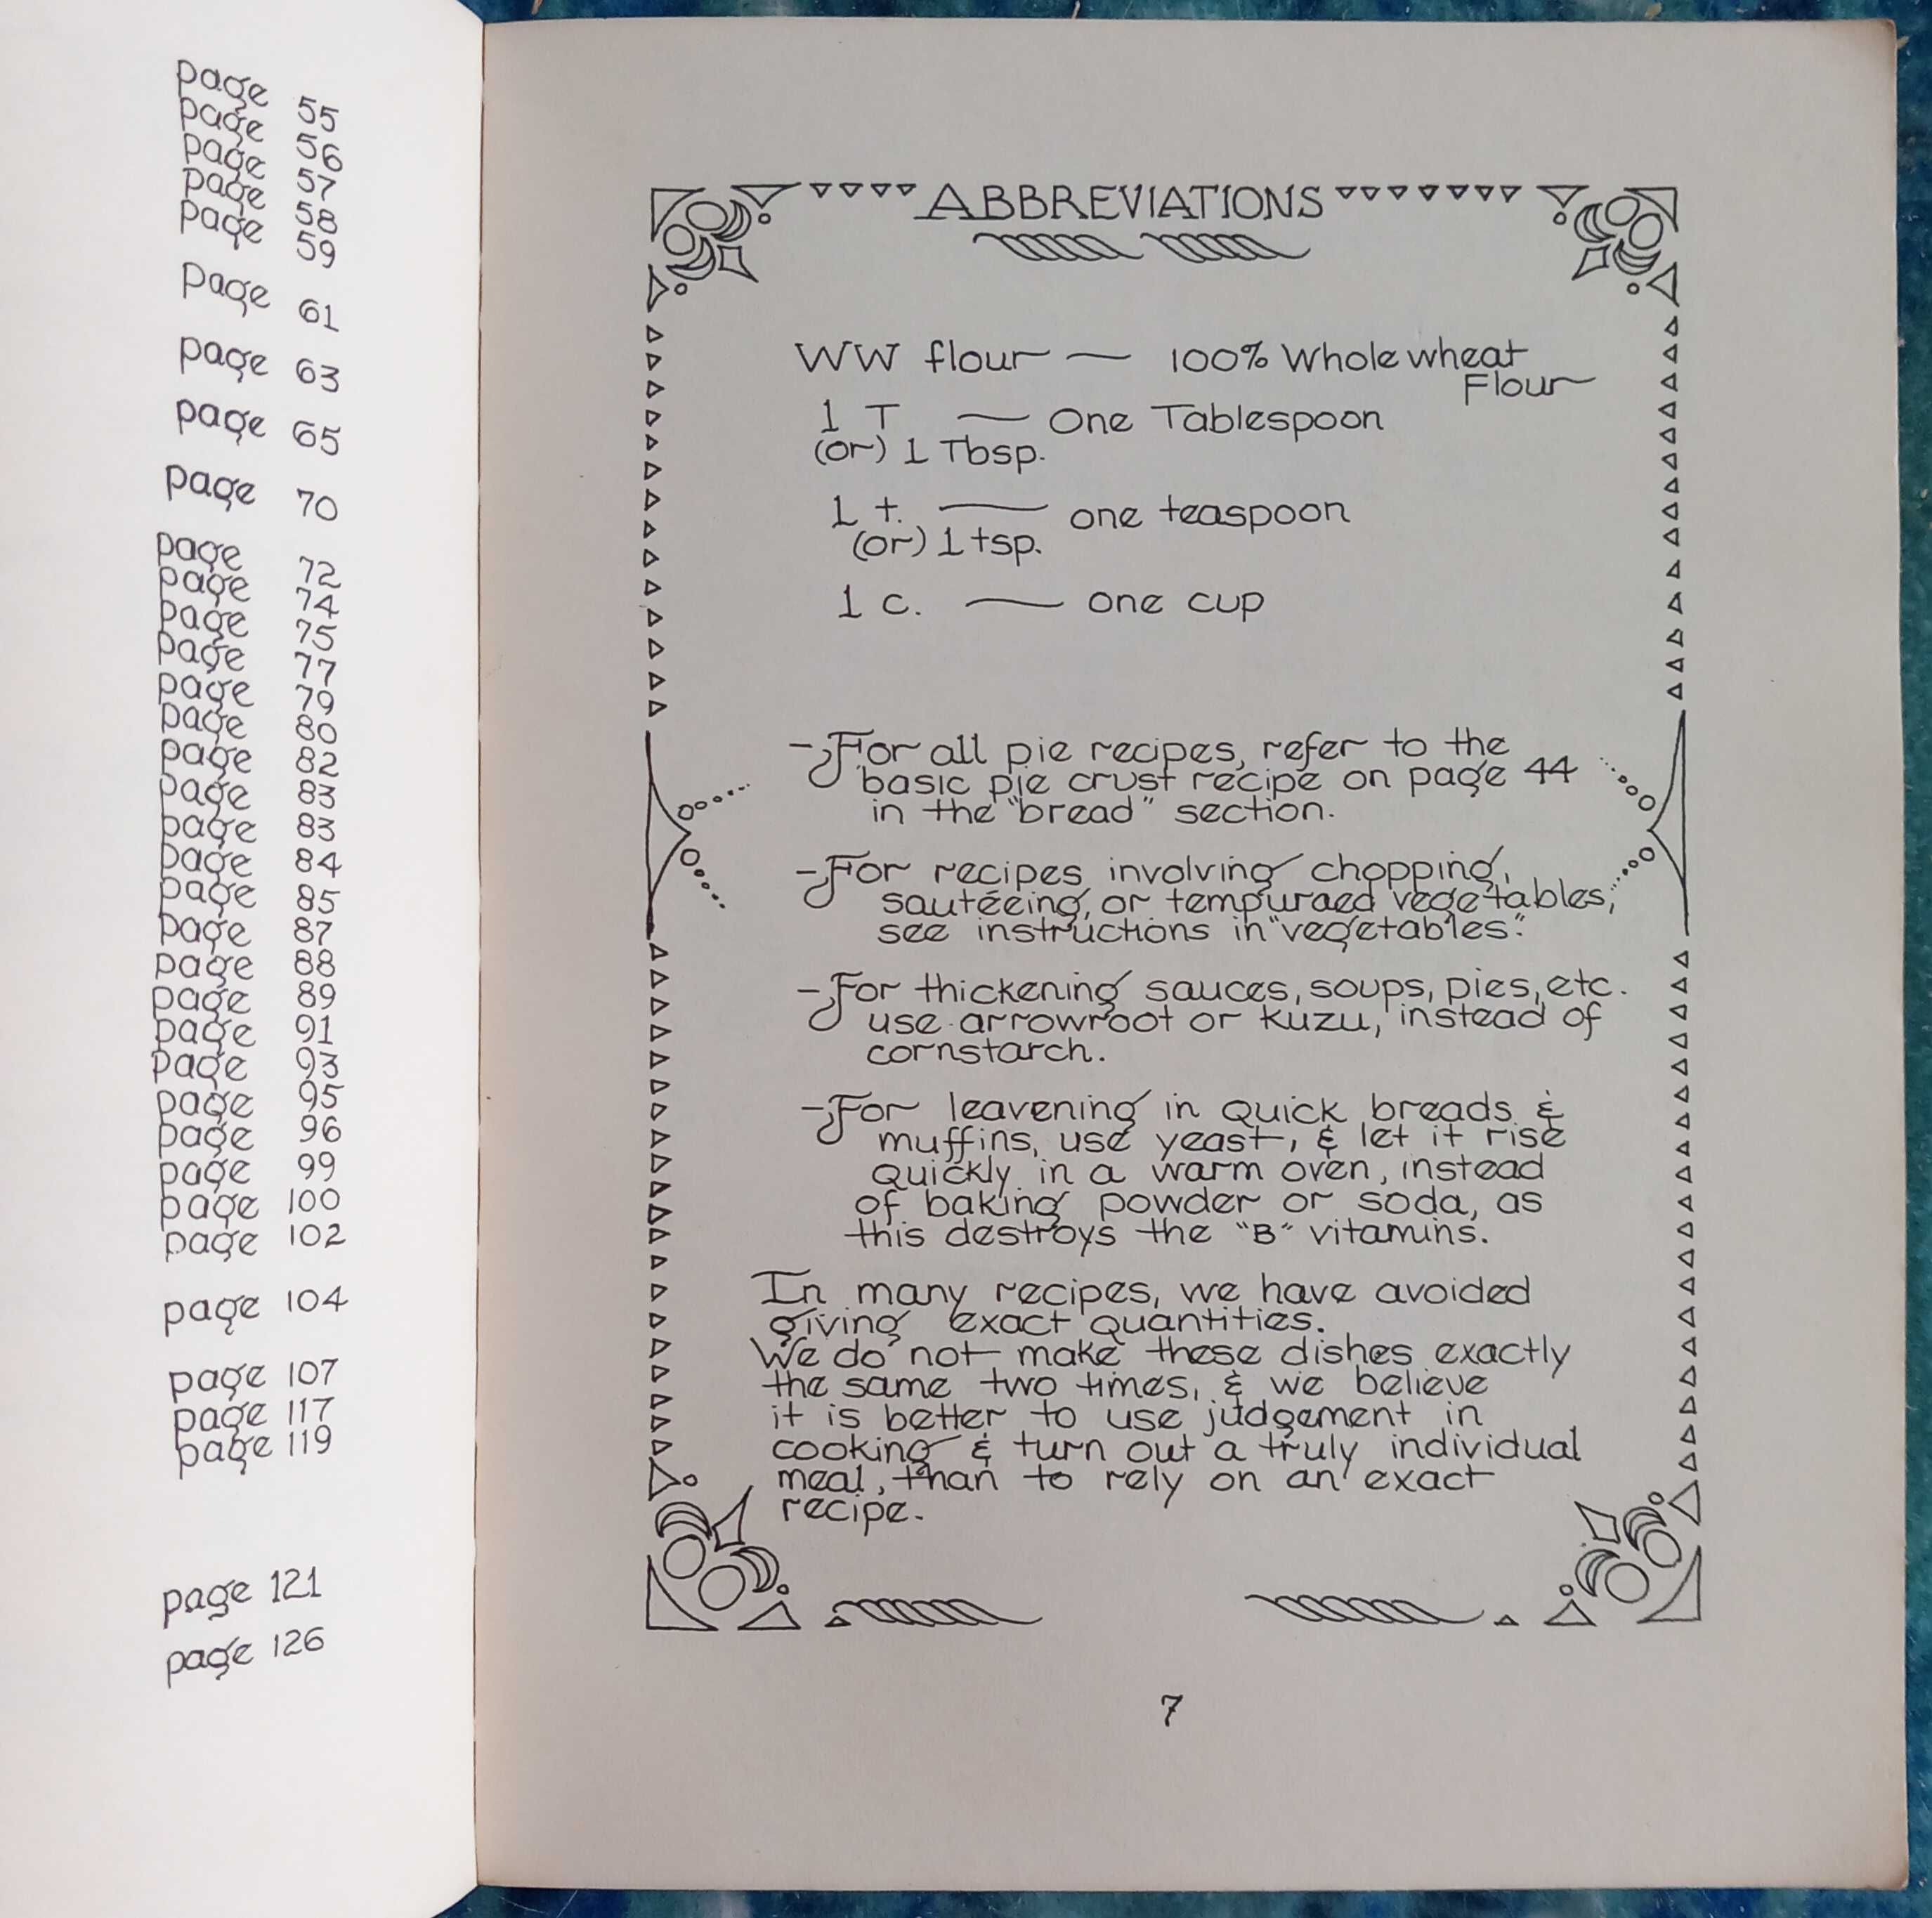 page 55
page 56
page 57
page 58
page 59
page 61
page 63
page 65
page 70
page 72
page 74
page 75
page 77
page 79
page 80
page 82
page 83
page 83
page 84
page 85
page 87
page 88
page 89
page 91
page 93
page 95
page 96
page 99
page 100
page 102
page 104
page 107
page 117
page 119
page 121
page 126
ABBREVIATIONS
WW flour — 100% Whole wheat
Flour
1 T — One Tablespoon
(or) 1 Tbsp.
1 t. — one teaspoon
(or) 1 tsp.
1 c. — one cup
- For all pie recipes, refer to the
basic pie crust recipe on page 44
in the "bread" section.
- For recipes involving chopping,
sautéeing, or tempuraed vegetables,
see instructions in "vegetables".
- For thickening sauces, soups, pies, etc.
use arrowroot or kuzu, instead of
cornstarch.
- For leavening in quick breads &
muffins, use yeast, & let it rise
quickly in a warm oven, instead
of baking powder or soda, as
this destroys the "B" vitamins.
In many recipes, we have avoided
giving exact quantities.
We do not make these dishes exactly
the same two times, & we believe
it is better to use judgement in
cooking & turn out a truly individual
meal, than to rely on an exact
recipe.
7